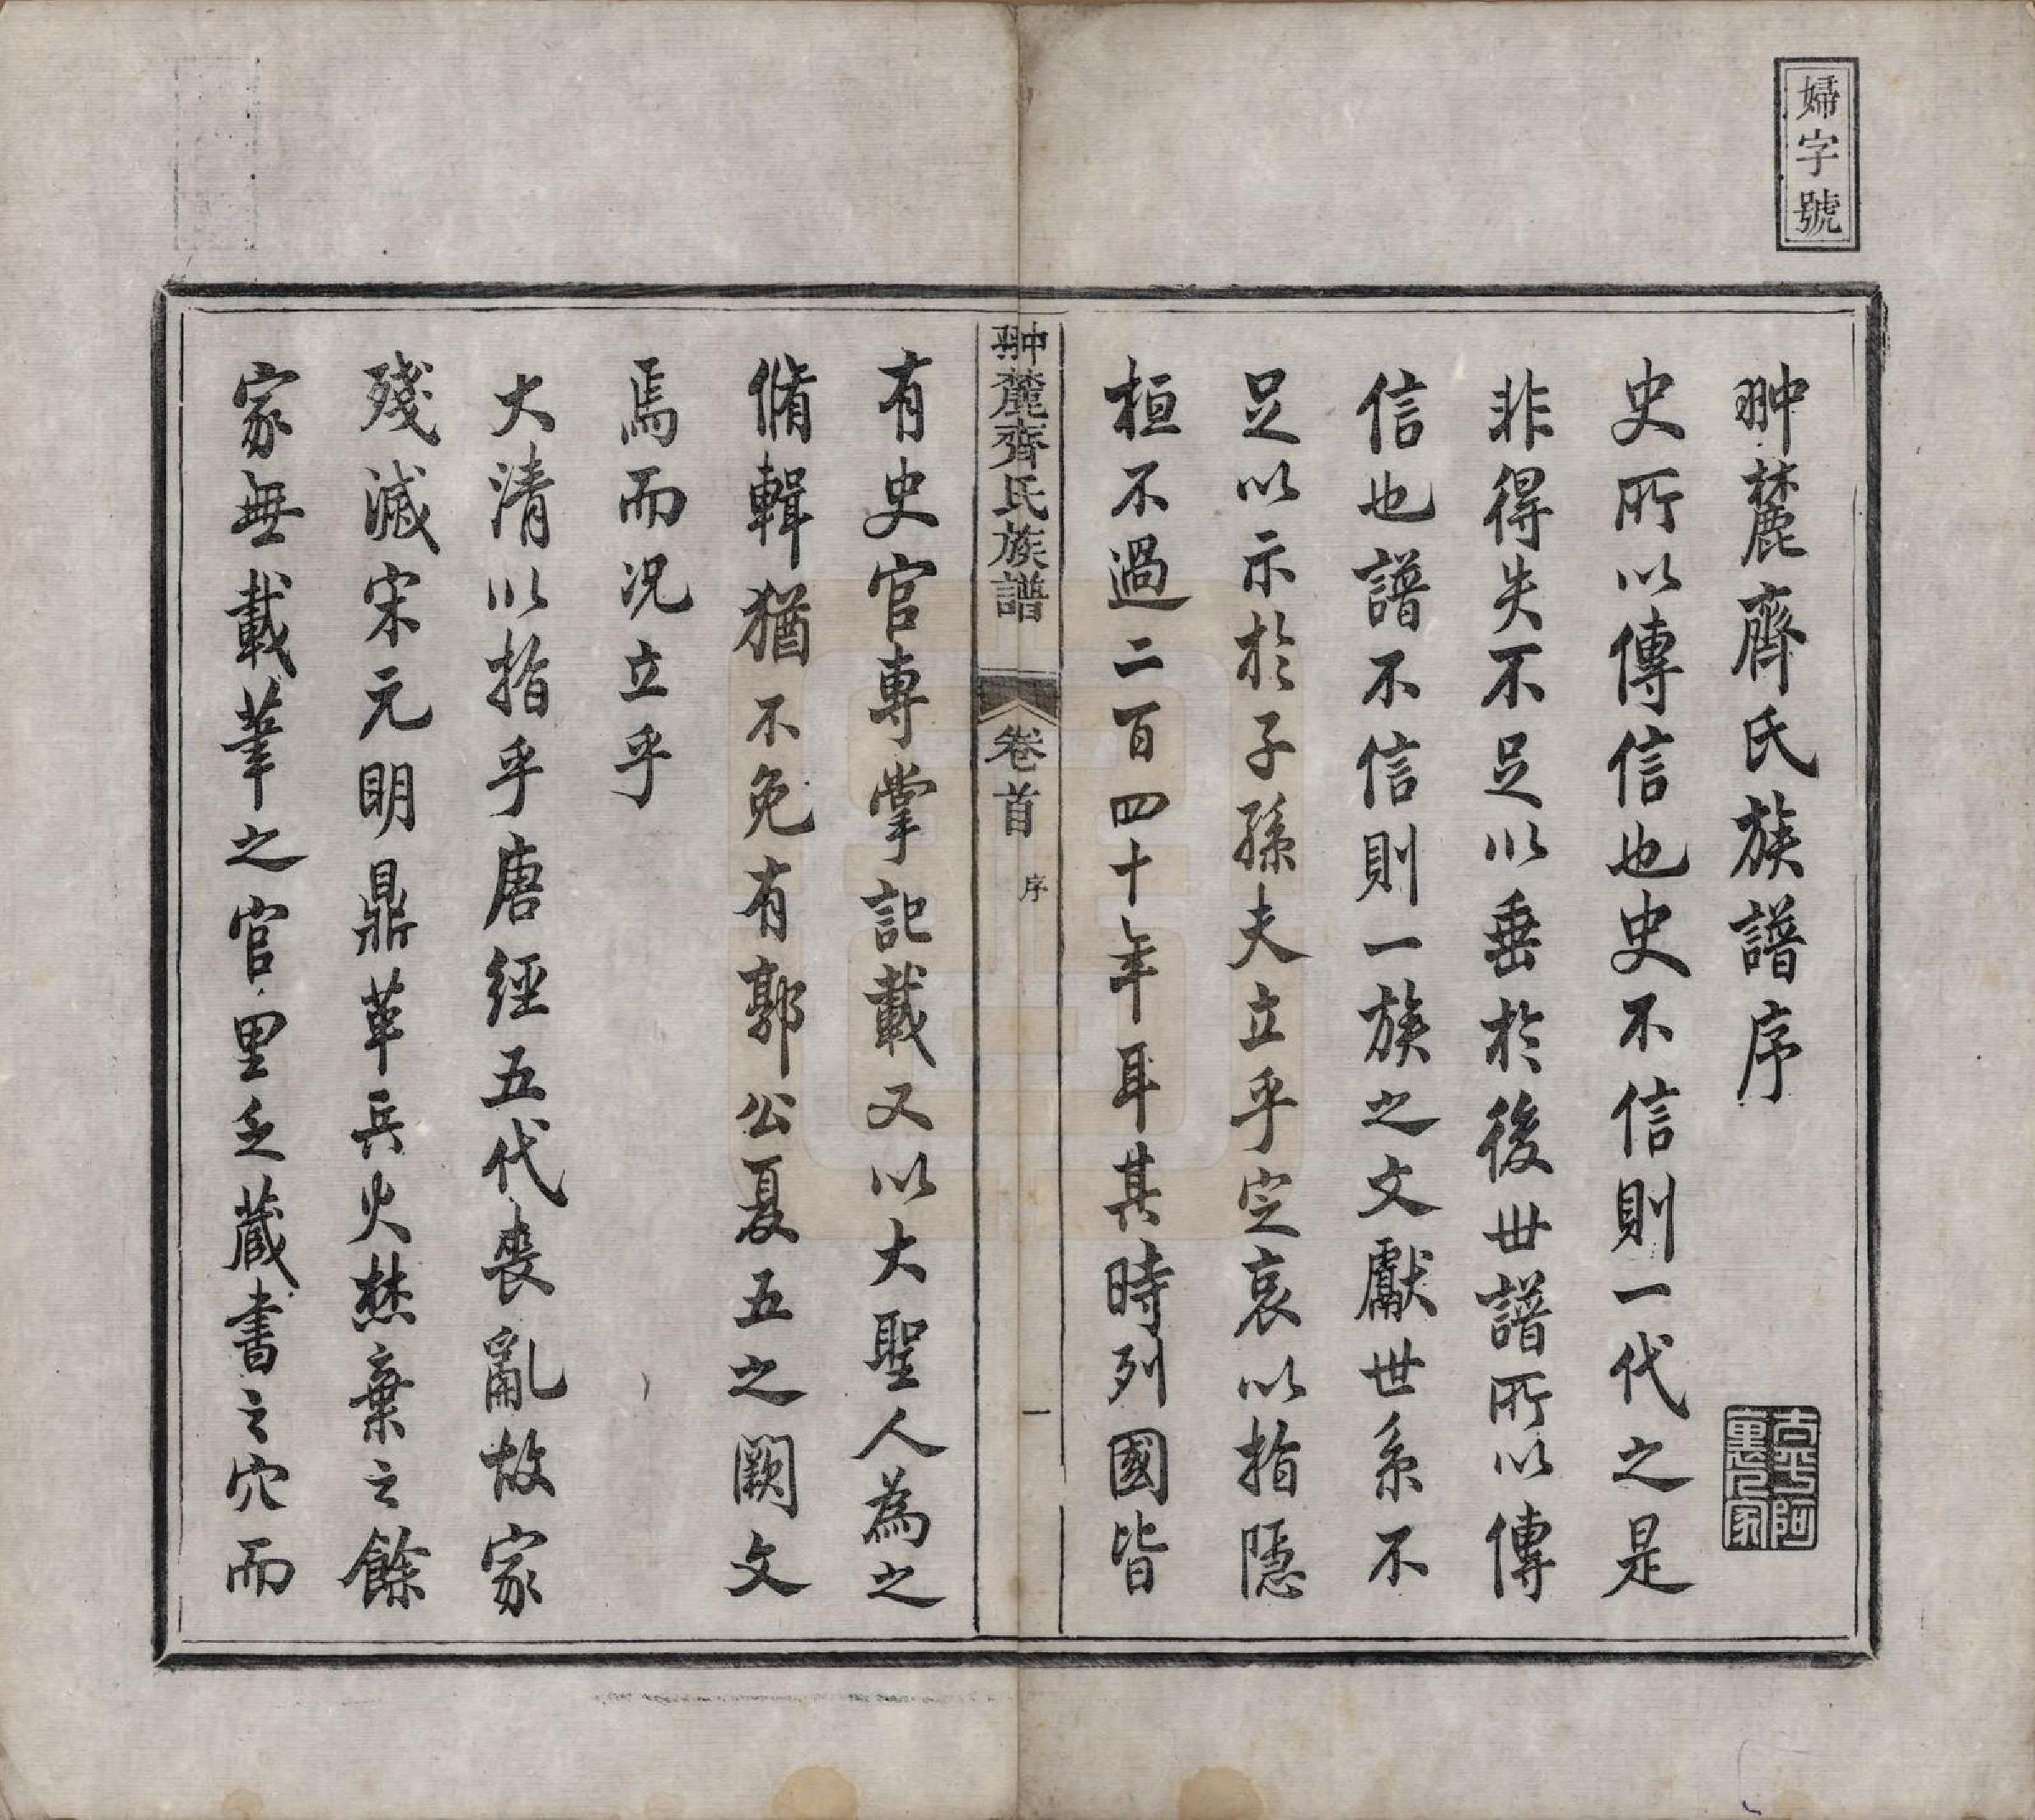 婦字號
翀麓齊氏族譜序
古平阿
里人家
史所以傳信也史不信則一代之是
非得失不足以垂於後世譜所以傳
信也譜不信則一族之文獻世系不
足以示於子孫夫立乎定哀以指隱
桓不過二百四十年耳其時列國皆
翀麓齊氏族譜 卷首 序 一
有史官專掌記載又以大聖人為之
脩輯猶不免有郭公夏五之闕文
焉而况立乎
大清以指乎唐經五代喪亂故家
殘滅宋元明鼎革兵火焚棄之餘
家無載筆之官里乏藏書之穴而